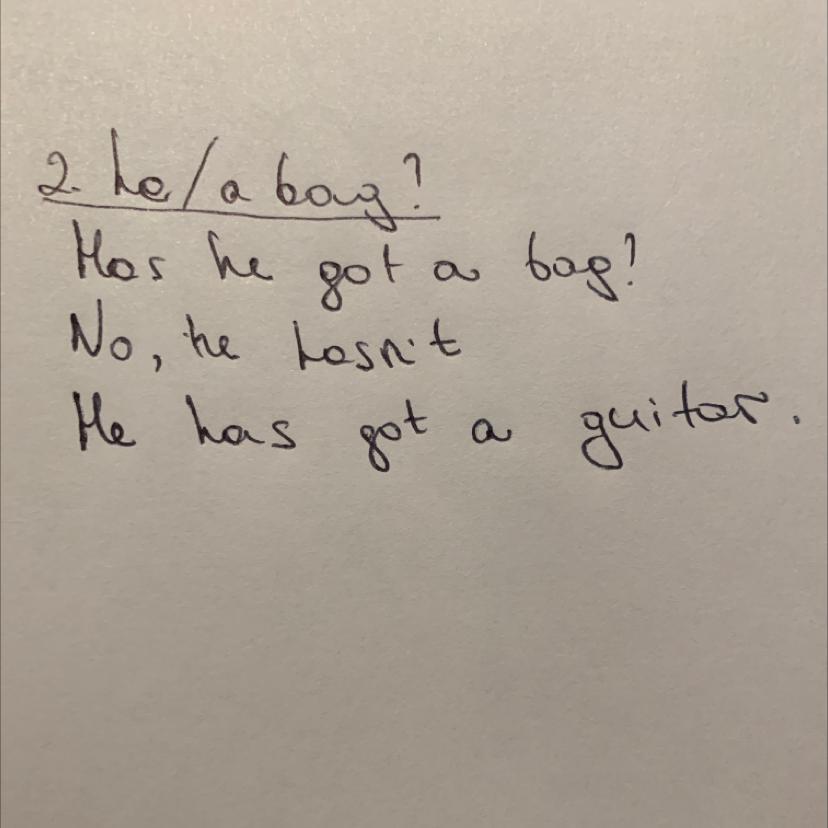 2. he/a bag?
Has he got a bag?
No, he hasn't
He has got a guitar.